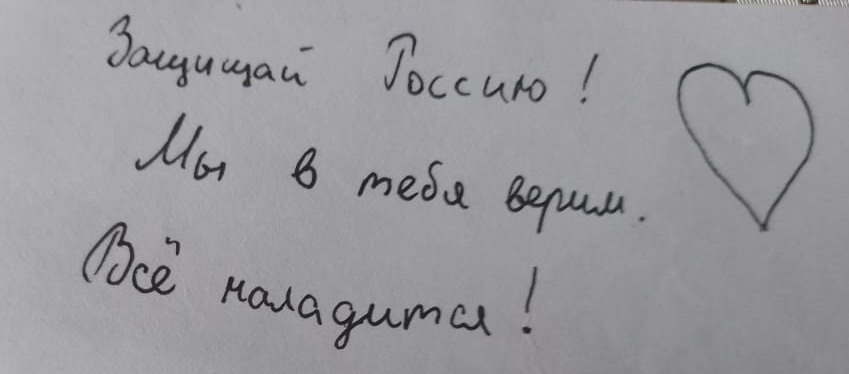 Защищай Россию!
Мы в тебя верим.
Всё наладится!